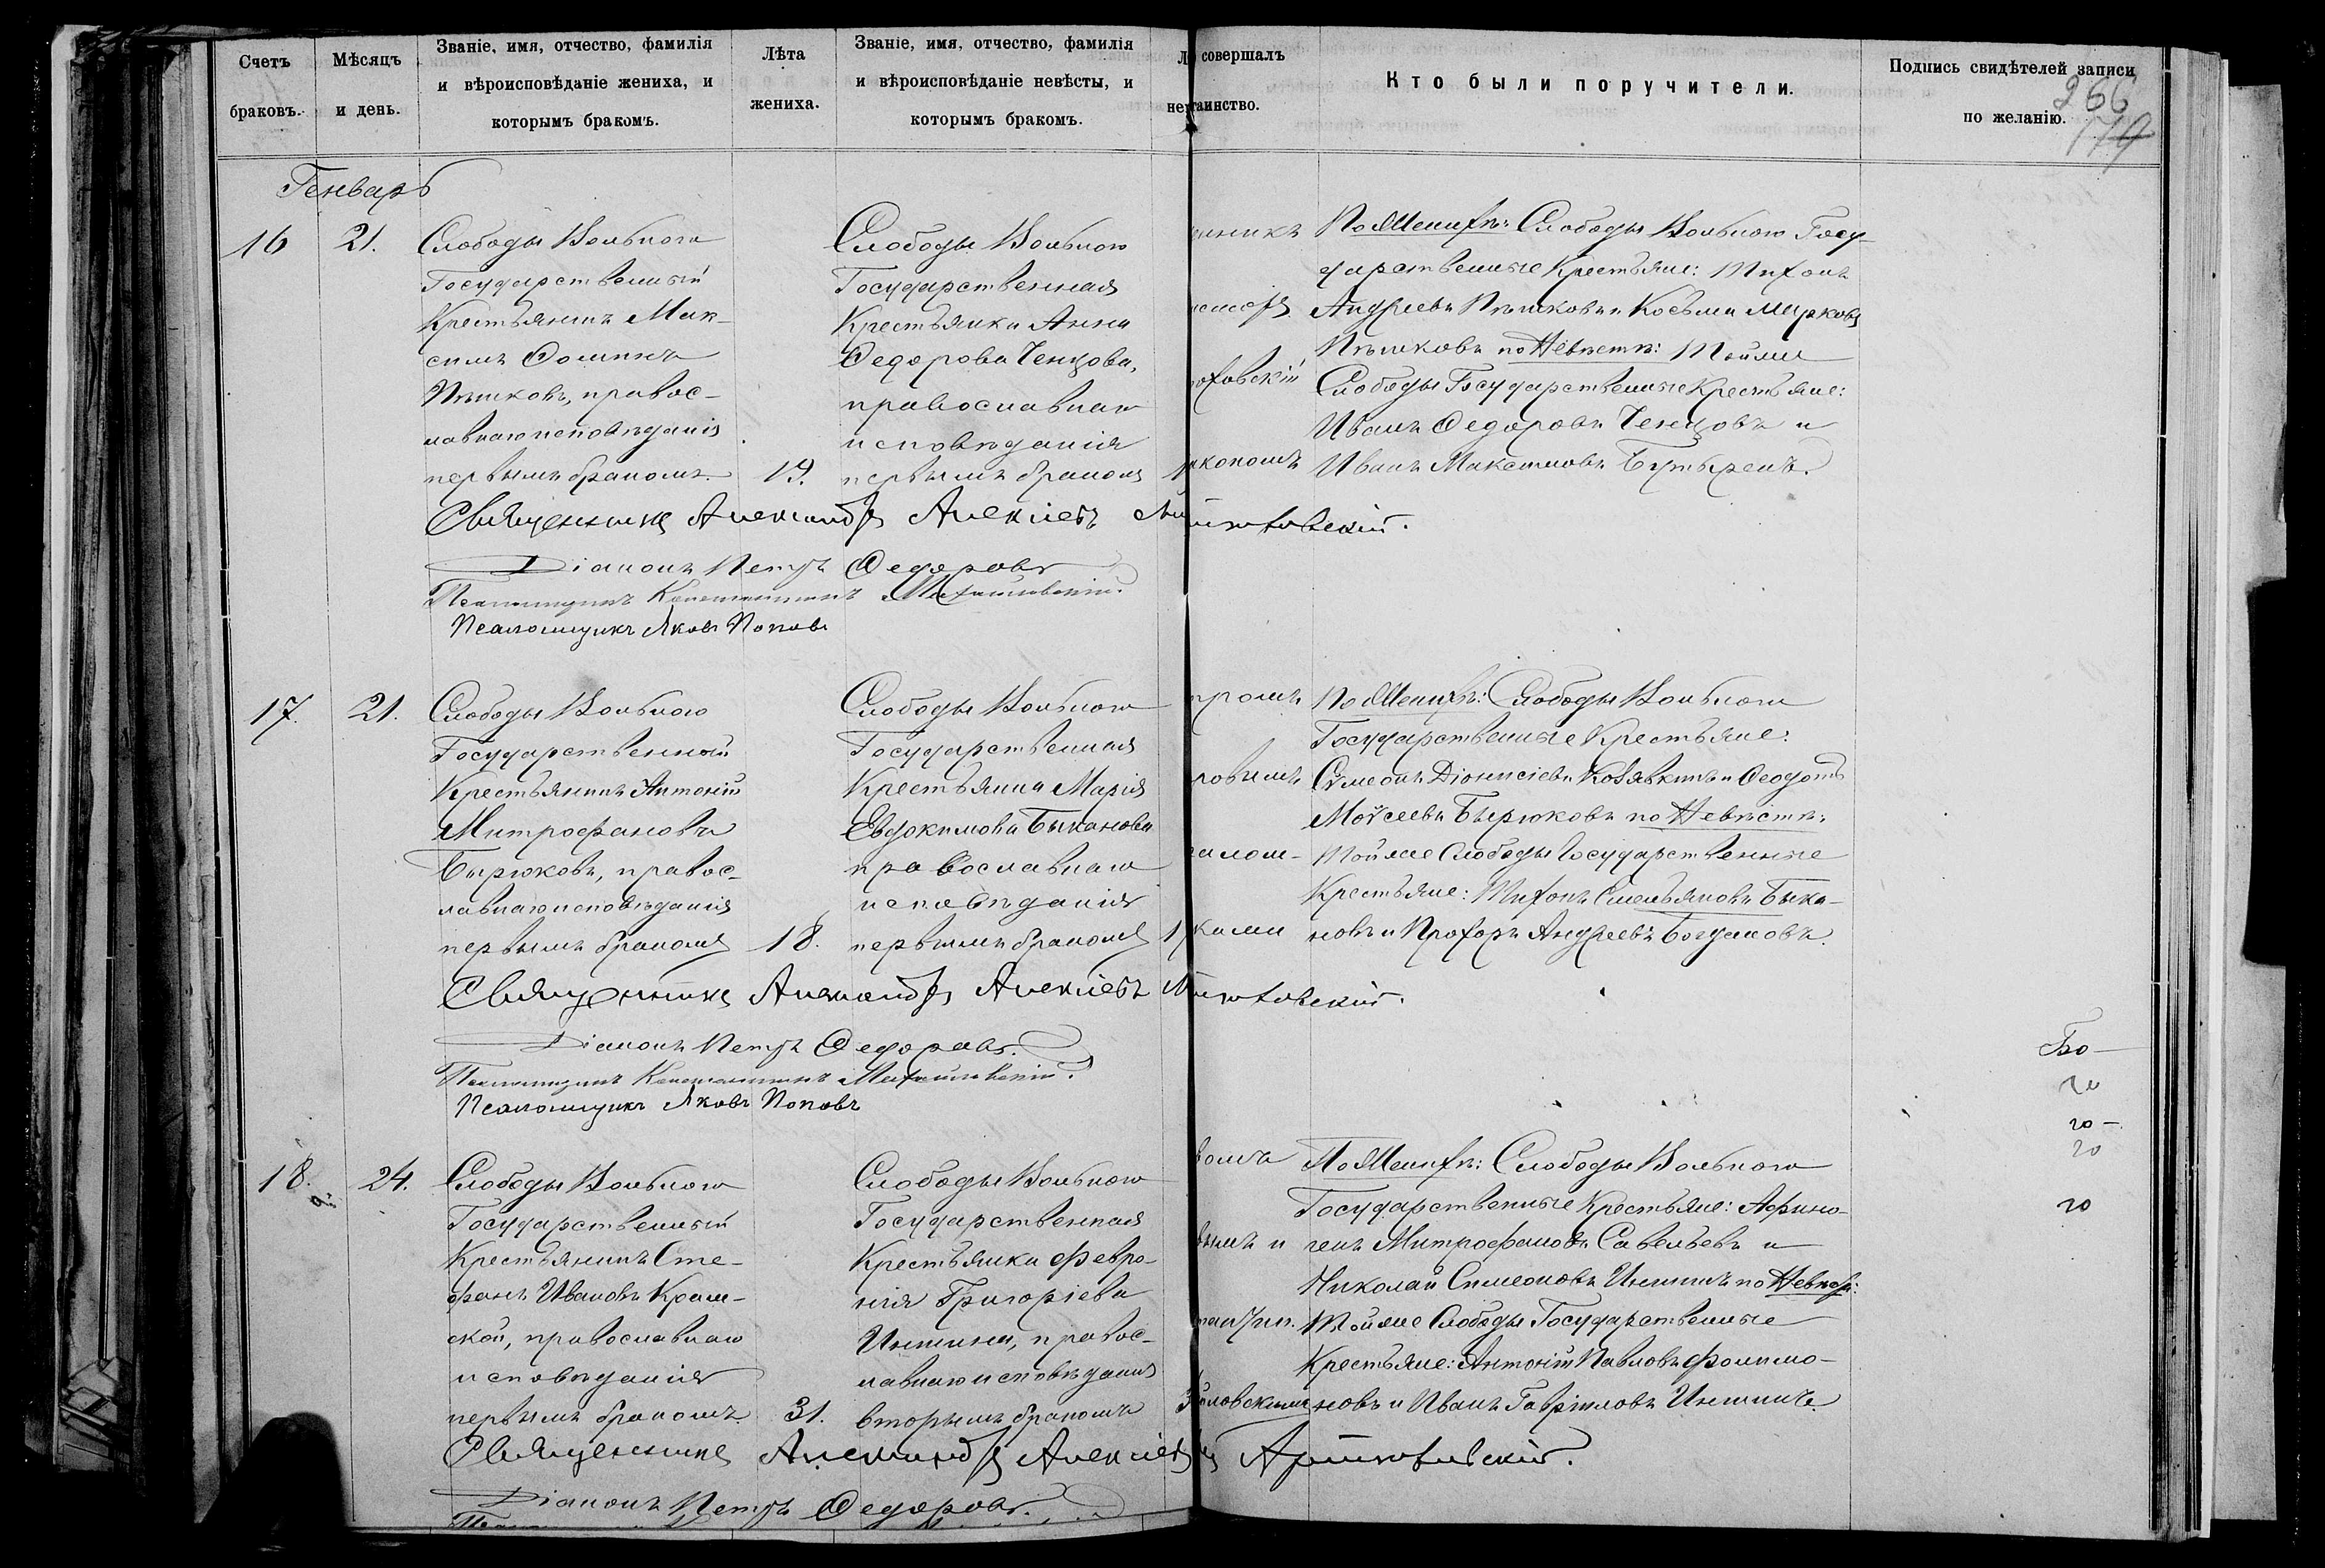 Счетъ
браковъ.
Мѣсяцъ
и день.
Званіе, имя, отчество, фамилія
и вѣроисповѣданіе жениха, и
которымъ бракомъ.
Лѣта
жениха.
Званіе, имя, отчество, фамилія
и вѣроисповѣданіе невѣсты, и
которымъ бракомъ.
совершалъ
таинство.
Кто были поручители.
Подпись свидѣтелей записи
по желанію.
266
174
Генварь
16
21.
Слободы Вольного
Государственный
Крестьянинъ Мак-
симъ Ѳоминъ
Пѣшковъ, правос-
лавнаго исповѣданія
первымъ бракомъ.
19.
Слободы Вольного
Государственная
Крестьянка Анна
Ѳедорова Ченцова,
православнаго
исповѣданія
первымъ бракомъ
По Женихѣ: Слободы Вольного Госу-
дарственные Крестьяне: Тихонъ
Андреевъ Пѣшковъ и Косьма Марковъ
Пѣшковъ по Невѣстѣ: Тойже
Слободы Государственные Крестьяне:
Иванъ Ѳедоровъ Ченцовъ и
Иванъ Максимовъ Бутыренъ.
Священникъ Александръ Алексіевъ
Діаконъ Петръ Ѳедоровъ
Псаломщикъ Константинъ Михайловскій.
Псаломщикъ Яковъ Поповъ
17.
21.
Слободы Вольного
Государственный
Крестьянинъ Антоній
Митрофановъ
Бирюковъ, правос-
лавнаго исповѣданія
первымъ бракомъ
18.
Слободы Вольного
Государственная
Крестьянка Марія
Евдокимова Быканова
православнаго
исповѣданія
первымъ бракомъ
По Женихѣ: Слободы Вольного
Государственные Крестьяне:
Сѵмеонъ Діонисіевъ Козявкинъ и Ѳеодотъ
Моѵсеевъ Бирюковъ по Невѣстѣ:
Тойже Слободы Государственные
Крестьяне: Тихонъ Емельяновъ Быка-
новъ и Прохоръ Андреевъ Богдановъ.
Священникъ Александръ Алексіевъ
Діаконъ Петръ Ѳедоровъ.
Псаломщикъ Константинъ Михайловскій.
Псаломщикъ Яковъ Поповъ
18.
24.
Слободы Вольного
Государственный
Крестьянинъ Сте-
фанъ Ивановъ Крам-
ской, православнаго
исповѣданія
первымъ бракомъ
31.
Слободы Вольного
Государственная
Крестьянка Февро-
нія Григоріева
Иншина, правос-
лавнаго исповѣданія
вторымъ бракомъ
По Женихѣ: Слободы Вольного
Государственные Крестьяне: Афино-
генъ Митрофановъ Савельевъ и
Николай Симеоновъ Иншинъ по Невѣстѣ:
Тойже Слободы Государственные
Крестьяне: Антоній Павловъ Филимо-
новъ и Иванъ Гавріиловъ Иншинъ.
Священникъ Александръ Алексіевъ
Діаконъ Петръ Ѳедоровъ.